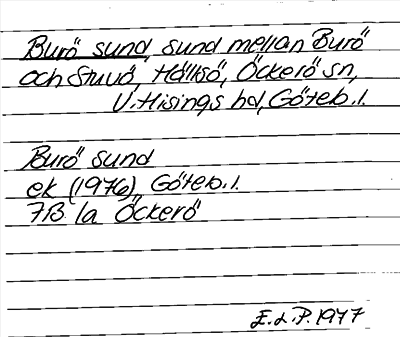 Burö sund, sund mellan Burö
och Stuvö, Hällsö, Öckerö sn,
V. Hisings hd, Göteb. l.
Burö sund
ek (1976), Göteb. l.
7B 1a Öckerö
E.d.P. 1977